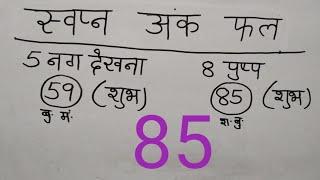 स्वप्न अंक फल
5 नग देखना
59 (शुभ)
बु. मं.
8 पुष्प
85 (शुभ)
श. बु.
85